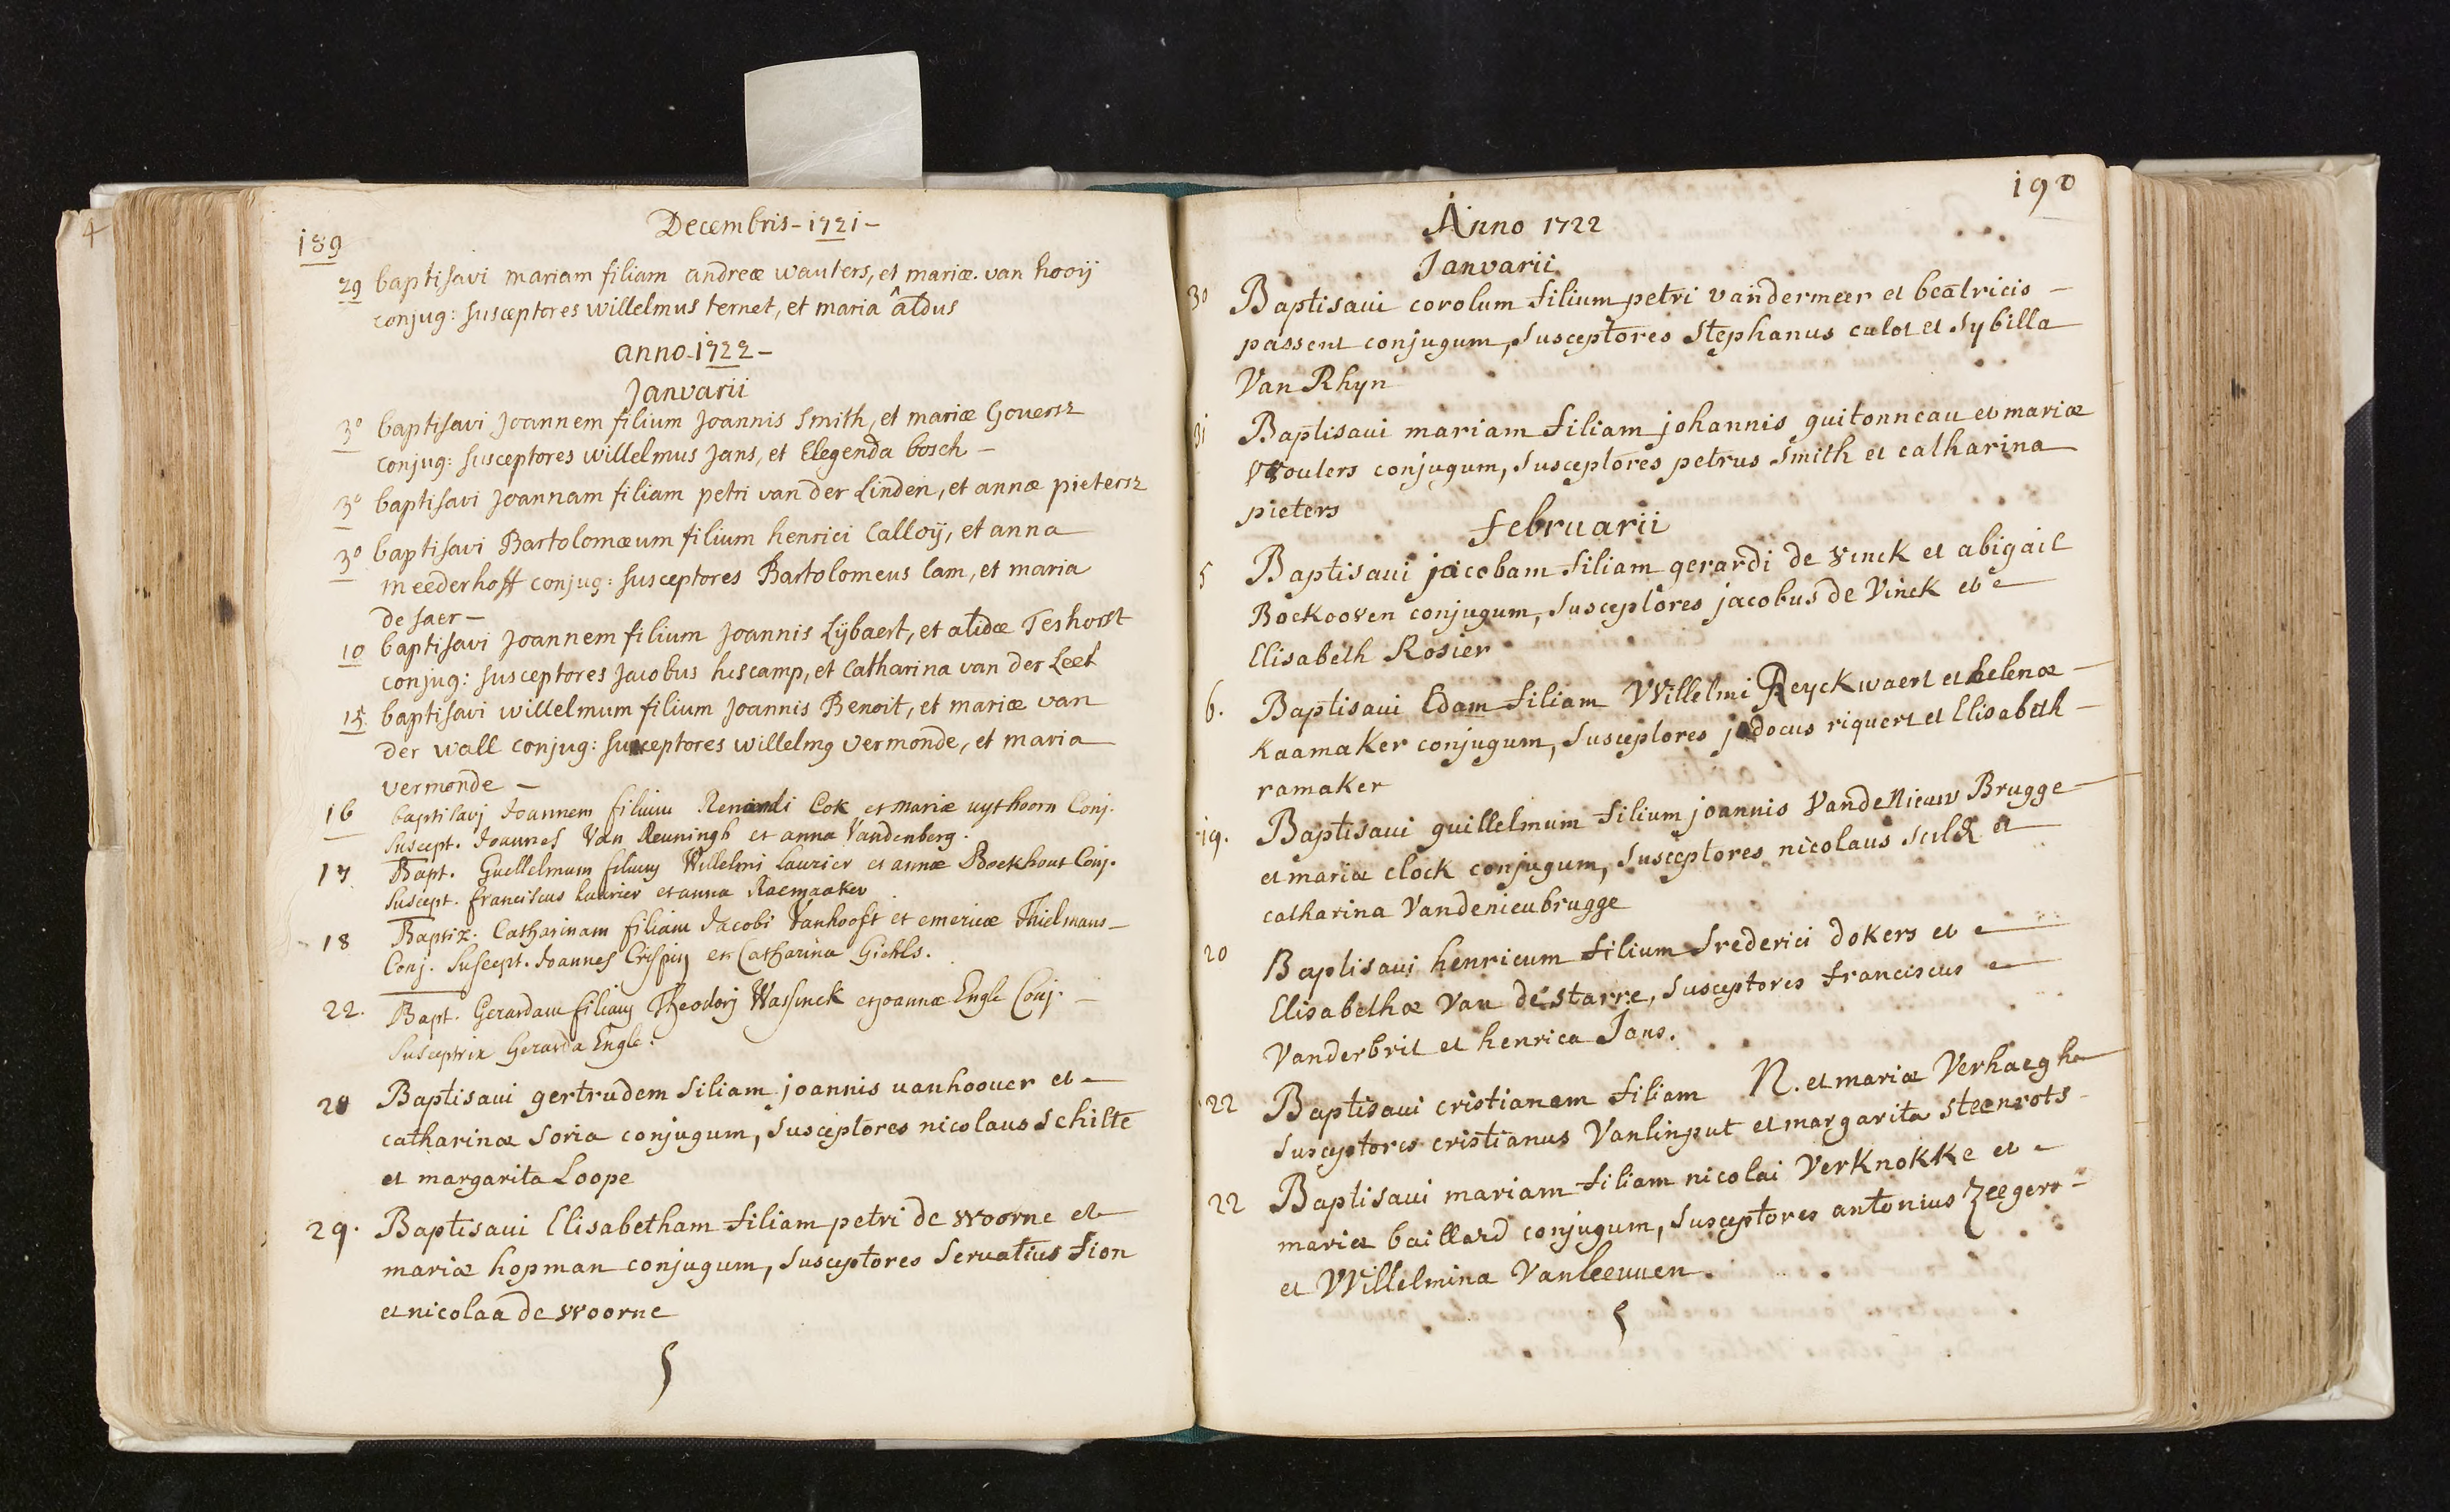 4
189
Decembris - 1721 -
29 baptisavi mariam filiam andreæ wauters, et mariæ van hooij
conjug: susceptores willelmus ternet, et maria aldus
anno - 1722 -
Janvarii
3º baptisavi Joannem filium Joannis Smith, et mariæ Goversz
conjug: susceptores willelmus Jans, et Elegenda bosch -
3º baptisavi Joannam filiam petri van der Linden, et annæ pietersz
3º baptisavi Bartolomæum filium henrici Calloij, et anna
meederhoff conjug: susceptores Bartolomeus lam, et maria
de saer -
10 baptisavi Joannem filium Joannis Lijbaert, et alidæ Teshorst
conjug: susceptores Jacobus hescamp, et Catharina van der Leet
15 baptisavi willelmum filium Joannis Benoit, et mariæ van
der wall conjug: susceptores willelmg vermonde, et maria
vermonde -
16 baptisavj Joannem filium Renardi Cok et mariæ uythoorn Conj.
suscept. Joannes Van Reuningh et anna Vandenberg.
17 Bapt. Guellelmum filium Willelmi Laurier et annæ Boekhout Conj.
Suscept. franciscus Laurier et anna Raemaaker
18 Baptiz. Catharinam filiam Jacobi Vanhooft et emericæ Thielmans -
Conj. Suscept. Joannes Crispin et Catharina Giehls.
22. Bapt. Gerardam filiam Theodorj Wassinck et joannæ Engle Conj. -
Susceptrix Gerarda Engle.
28 Baptisaui gertrudem filiam joannis vanhoover et
catharinæ Soria conjugum, Susceptores nicolaus Schilte
et margarita Loope
29. Baptisaui Elisabetham filiam petri de woorne et
mariæ hopman conjugum, Susceptores Servatius Fion
et nicolaa de woorne
190
Anno 1722
Janvarii
30 Baptisaui corolum filium petri vandermeer et beatricis -
passent conjugum, Susceptores Stephanus culot et Sybilla
Van Rhyn
31 Baptisaui mariam filiam johannis guitonneau et mariæ
Wouters conjugum, Susceptores petrus Smith et catharina
pieters
februarii
5 Baptisaui jacobam filiam gerardi de vinck et abigail
Bockooven conjugum, Susceptores jacobus de Vinck et
Elisabeth Rosier
6. Baptisaui Edam filiam Willelmi Reyckwaert et helenæ -
Kaamaker conjugum, Susceptores jodocus riquert et Elisabeth -
ramaker
19. Baptisaui guillelmum filium joannis VandeNieuw Brugge
et mariæ clock conjugum, Susceptores nicolaus et
catharina Vandenieubrugge
20 Baptisaui henricum filium frederici dokers et
Elisabethæ Van de starre, Susceptores franciscus
Vanderbril et henrica Jans.
22 Baptisaui cristianam filiam N. et mariæ Verhaeghe
Susceptores cristianus Vanlinput et margarita steenrots -
22 Baptisaui mariam filiam nicolai Verknokke et
mariæ baillard conjugum, Susceptores antonius Zeegers -
et Willelmina Vanleeuuen.